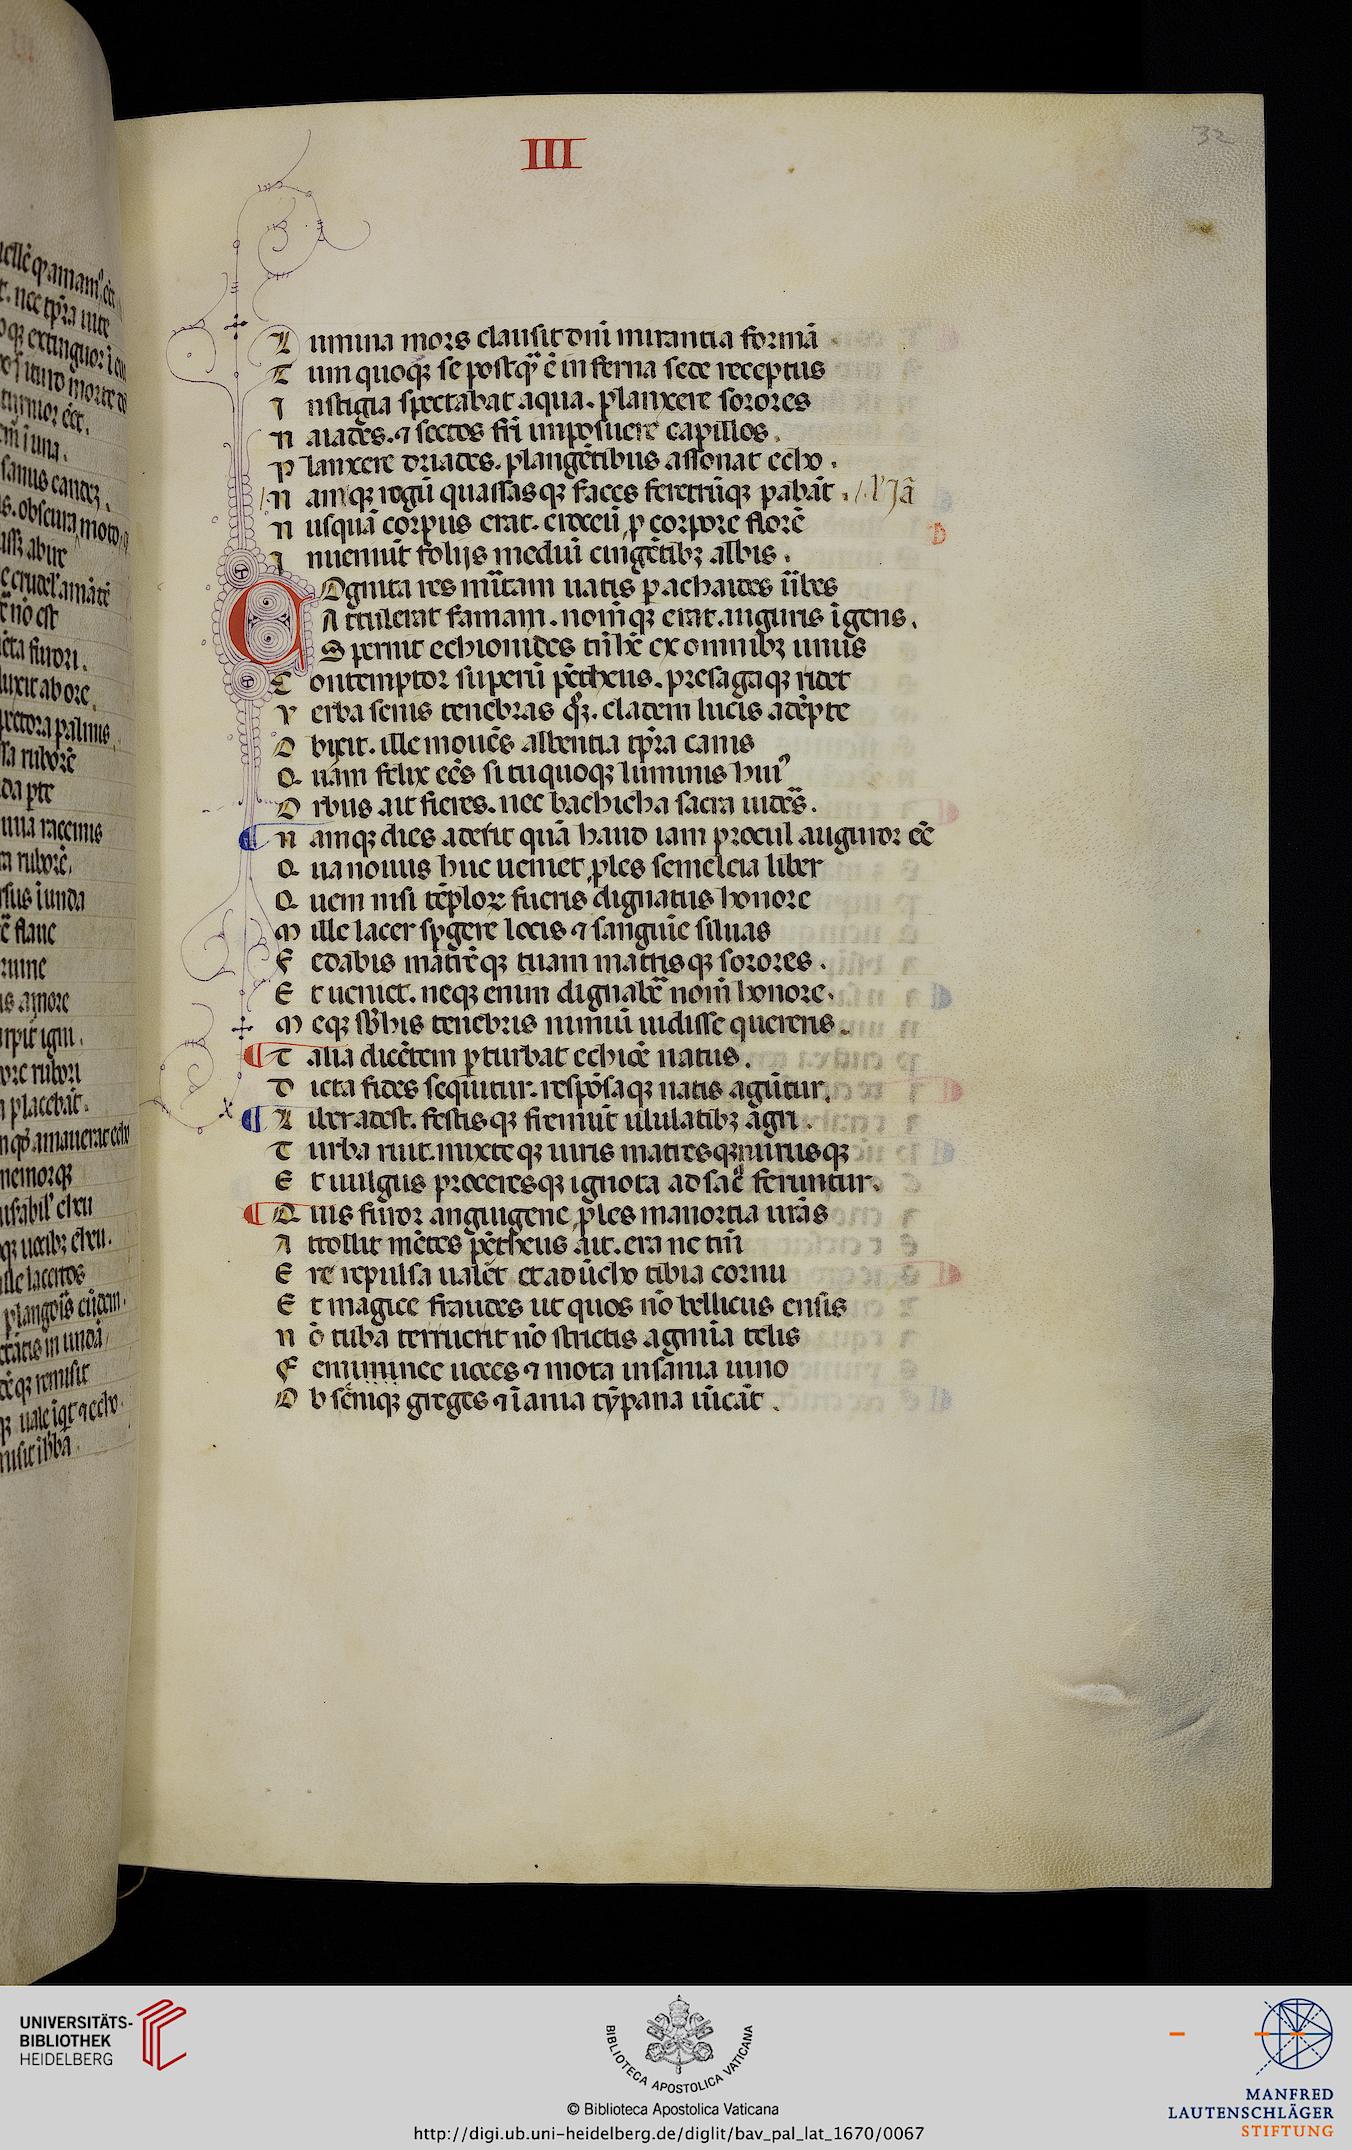 III
32
L umina mors clausit dn̄i mirantia formā
T um quoq; se postq̄ ē inferna sede receptus
I nstigia spectabat aqua. planxere sorores
N aiades. ⁊ sectos fr̄i imposuere capillos.
P lanxere driades. plangētibus assonat echo.
N amq; rogū quassasq; faces feretrūq; pabāt. l' Jā
N usquā corpus erat. croceū p̄ corpore florē
I nueniūt folijs mediū cingētib; albis.
COgnita res m̄itam uatis p achaides ūbes
A ttulerat famam. nom̄q; erat auguris īgens.
S pernit echionides tn̄ hc̄ ex omnib; unus
C ontemptor superū pētheus. presagaq; ridet
V erba senis tenebras q;. cladem lucis adēpte
O bicit. ille mouēs albentia tp̄ra canis
Q uam felix eēs si tu quoq; luminis hui9
O rbus ait fieres. nec bachicha sacra uidēs.
N amq; dies aderit quā haud iam procul auguror eē
Q ua nouus huc ueniet p̱les semeleia liber
Q uem nisi tēploꝝ fueris dignatus honore
M ille lacer spgere locis ⁊ sanguīe siluas
F edabis matrēq; tuam matrisq; sorores.
E t ueniet. neq; enim dignabe᷑ nom̄ honore.
M eq; sb̄ his tenebris nimiū uidisse quereris.
T alia dicētem pturbat echiōe natus.
D icta fides sequitur. respōsaq; uatis agūtur.
L iber adest. festisq; fremūt ululatib; agri.
T urba ruit. mixteq; uiris matresq; nurusq;
E t uulgus proceresq; ignota ad sac̄ feruntur.
Q uis furor anguigene p̱les mauortia ur̄as
A ttollit mētes pētheus ait. era ne tm̄
E re repulsa ualēt et adūcho tibia cornu
E t magice fraudes ut quos nō bellicus ensis
N ō tuba terruerit nō strictis agmīa telis
F eminineee uoces ⁊ mota insania uino
O bscēniq; greges ⁊ īania tȳpana uīcāt.
UNIVERSITÄTS-
BIBLIOTHEK
HEIDELBERG
BIBLIOTECA APOSTOLICA VATICANA
© Biblioteca Apostolica Vaticana
http://digi.ub.uni-heidelberg.de/diglit/bav_pal_lat_1670/0067
MANFRED
LAUTENSCHLÄGER
STIFTUNG